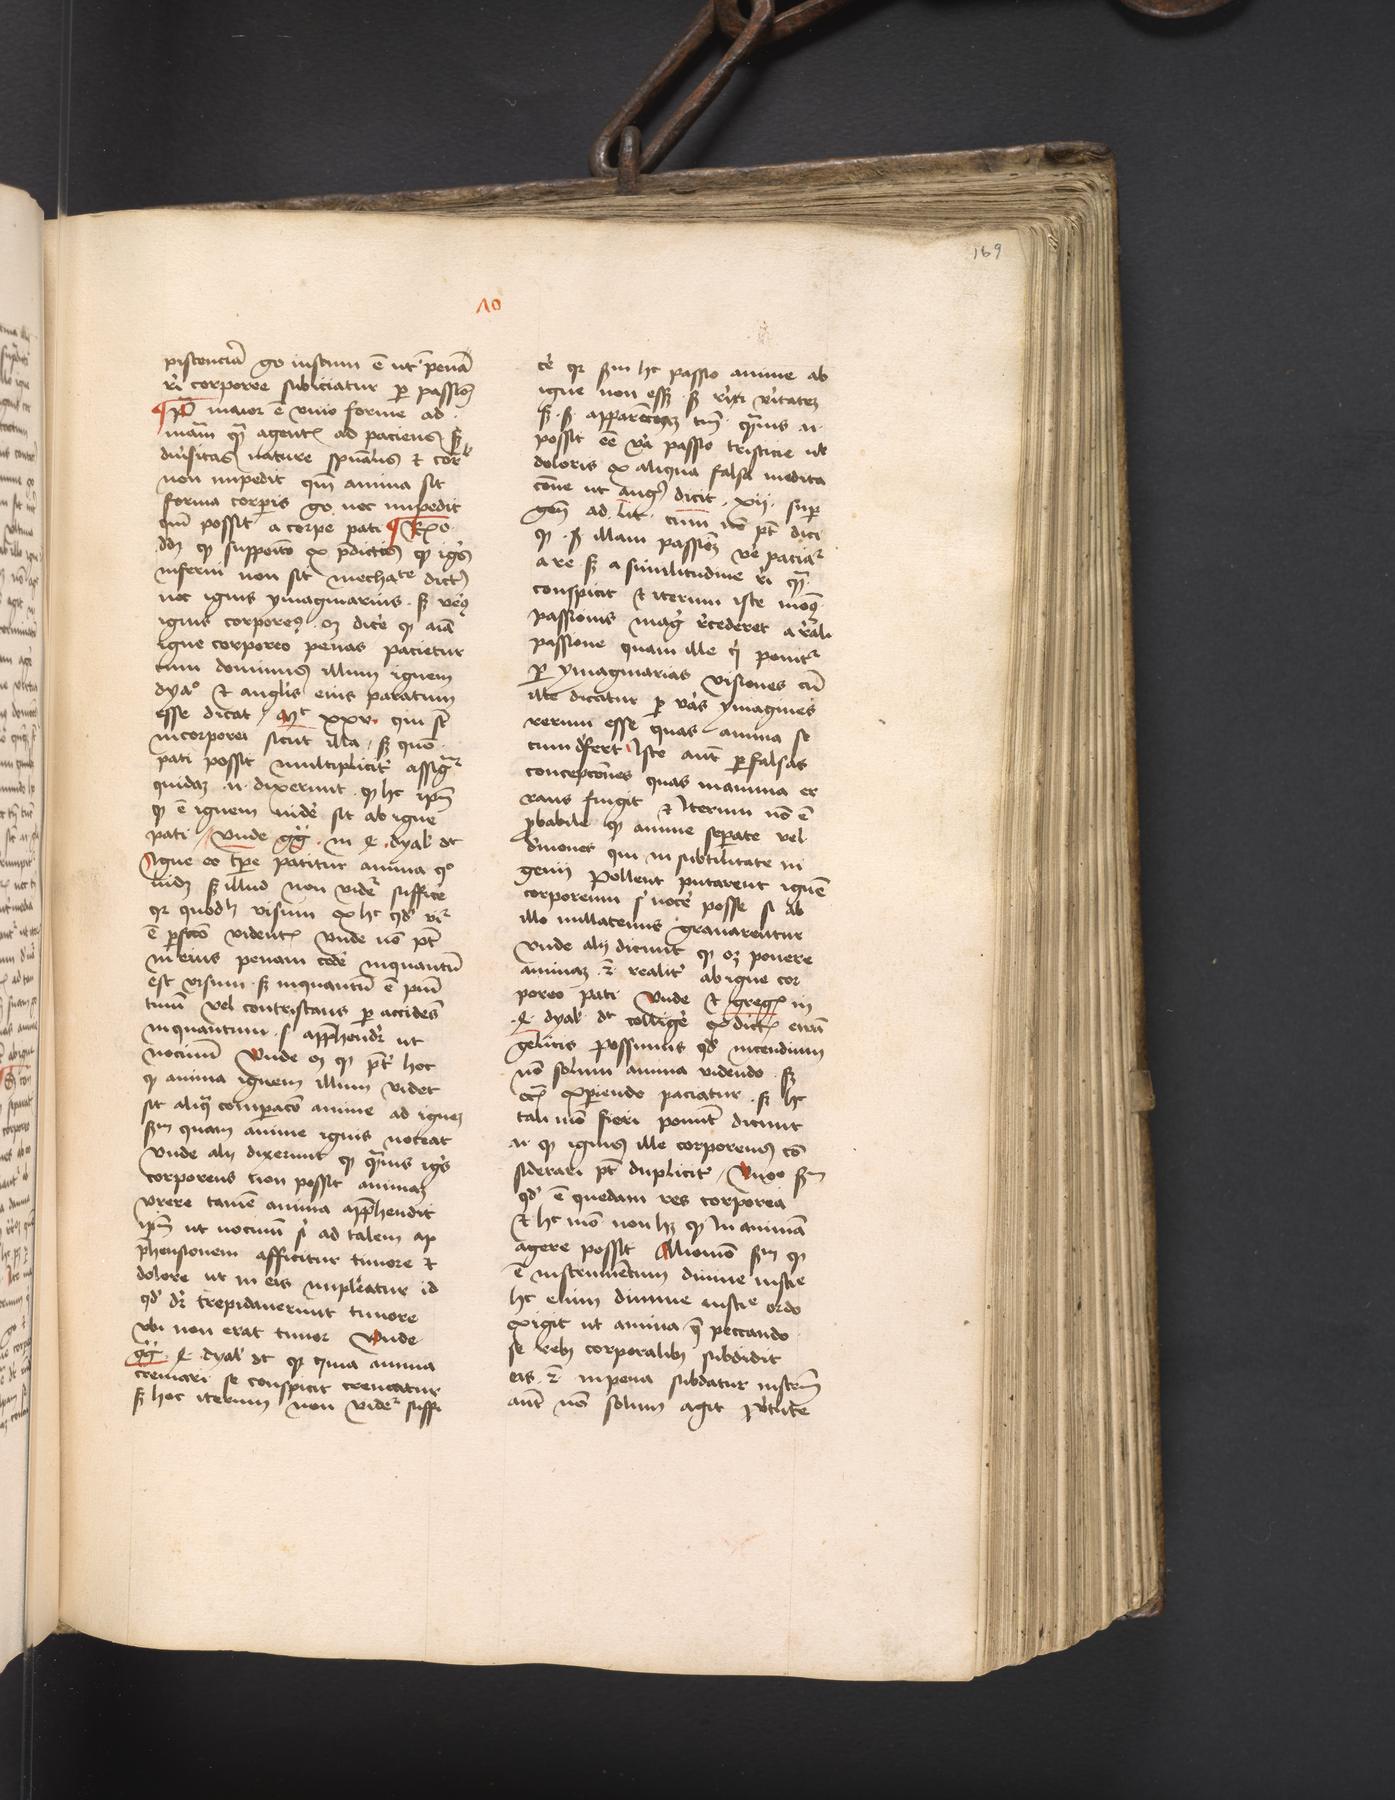 169
10
pistencia go iustum e ut penā
ri corporee subiciatur p passioē
maior e unio forme ad
mam quā agentis ad paciens sz
diversitas nature spualis et corᵃˡⁱˢ
non impedit qn anima sit
forma corpis go nec impedit
qn possit a corpe pati Rᵒ
ddm qp supposito ex pdictis qp ignis
inferni non sit methace dictus
nec ignis ymaginarius sz verus
ignis corporeus oz dice qp aiā
igne corporeo penas pacietur
cum dominus illum ignem
dyaᵒ et anglis eius paratum
esse dicat Mᵗ xxv qui st
incorporei sicut illa sz quō
pati possit multiplicit assigᵗ
quidam n dixerunt qp hᶜ ipm
qp e ignem videre sit ab igne
pati Unde gg in 4 dyal dt
Igne eo ipe patitur anima qᵒ
videt sz illud non videᵗ suffice
qr quodlz visum ex hᶜ qd viᵗ
e pfcō videntis Unde nō pt
in eius penam cede inquantū
est visum sz inquantū e puni
tiuū vel contristans p accidēs
inquantum s apphendit ut
nociuū Unde oz qp pt hoc
qp anima ignem illum videt
sit aliqua compacō anime ad ignem
scdm quam anime ignis noceat
Unde alij dixerunt qp quāuis ignis
corporeus non possit animam
urere tamē anima apphendit
ipm ut nociuū s ad talem ap
phensionem afficitur timore et
dolore ut in eis impleatur id
qd dr trepidaverunt timore
ubi non erat timor Unde
gg 4 dyal dt qr quia anima
cremari se conspicit crematur
sz hoc iterum non videᵗ suffi
cē qr scdm hᶜ passio anime ab
igne non esset sz rei veritatem
sz s apparenciam tm quāuis n
possit eē va passio tristicie ul
doloris ex aliqua falsa medita
cōne ut aug dicit xii sup
gen ad lit tamen nō pt dici
qp s illam passionem ve paciaᵗ
a re sz a similitudine ri quā
conspicit et iterum iste modus
passionis mag recederet a reali
passione quam ille qui poniᵗ
p ymaginarias visiones cū
ille dicatur p vas ymagines
rerum esse quas anima se
cum defert Iste aut p falsas
conceptōnes quas in anima er
rans fingit et Iterum nō e
pbabile qp anime separate vel
demones qui in subtilitate in
genij pollent putarent ignē
corporeum s nocē posse si ab
illo nullatenus gravarentur
Unde alij dicunt qp oz ponere
animam realit ab igne cor
poreo pati Unde et greg in
4 dyal dt colligē ex dictis ewā
gelicis possumus qd incendium
nō solum anima videndo sz
etiā expiendo paciatur sz hᶜ
tali mō fieri ponunt dicunt
n qp ignis ille corporeus cō
siderari pt duplicit Uno scdm
qd e quedam res corporea
et hᶜ mō non hz qp in animā
agere possit Aliomō scdm qp
e instrumentum divine iustie
hᶜ enim divine iustie ordo
exigit ut anima que peccando
se rebus corporalibus subdidit
eis in pena subdatur instrm
aut nō solum agit virtute